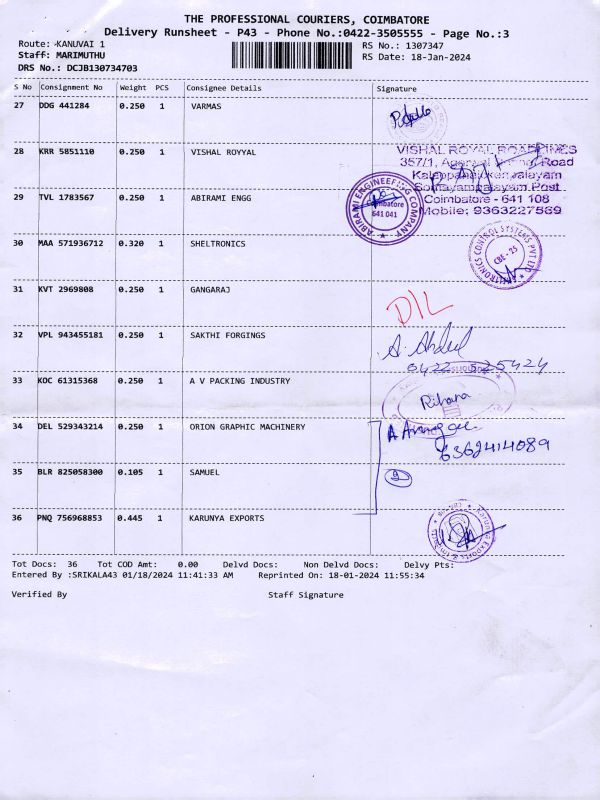 THE PROFESSIONAL COURIERS, COIMBATORE
Delivery Runsheet - P43 - Phone No.:0422-3505555 - Page No.:3
Route: KANUVAI 1
RS No.: 1307347
Staff: MARIMUTHU
RS Date: 18-Jan-2024
DRS No.: DCJB130734703
S No Consignment No Weight PCS Consignee Details Signature
27 DDG 441284 0.250 1 VARMAS
28 KRR 5851110 0.250 1 VISHAL ROYYAL
VISHAL ROYAL ROADLINES
357/1, Road
Kalappanaickenpalayam
Somayampalayam Post
Coimbatore - 641 108
Mobile: 9363227569
29 TVL 1783567 0.250 1 ABIRAMI ENGG
ABIRAMI ENGINEERING COMPANY
Coimbatore
641 041
30 MAA 571936712 0.320 1 SHELTRONICS
CONTROL SYSTEMS PVT LTD
CBE - 25
31 KVT 2969808 0.250 1 GANGARAJ
D/L
32 VPL 943455181 0.250 1 SAKTHI FORGINGS
A. Abdul
0422 525424
33 KOC 61315368 0.250 1 A V PACKING INDUSTRY
Rihana
34 DEL 529343214 0.250 1 ORION GRAPHIC MACHINERY
A
6362414089
35 BLR 825058300 0.105 1 SAMUEL
2
36 PNQ 756968853 0.445 1 KARUNYA EXPORTS
Tot Docs: 36 Tot COD Amt: 0.00 Delvd Docs: Non Delvd Docs: Delvy Pts:
Entered By :SRIKALA43 01/18/2024 11:41:33 AM Reprinted On: 18-01-2024 11:55:34
Verified By Staff Signature